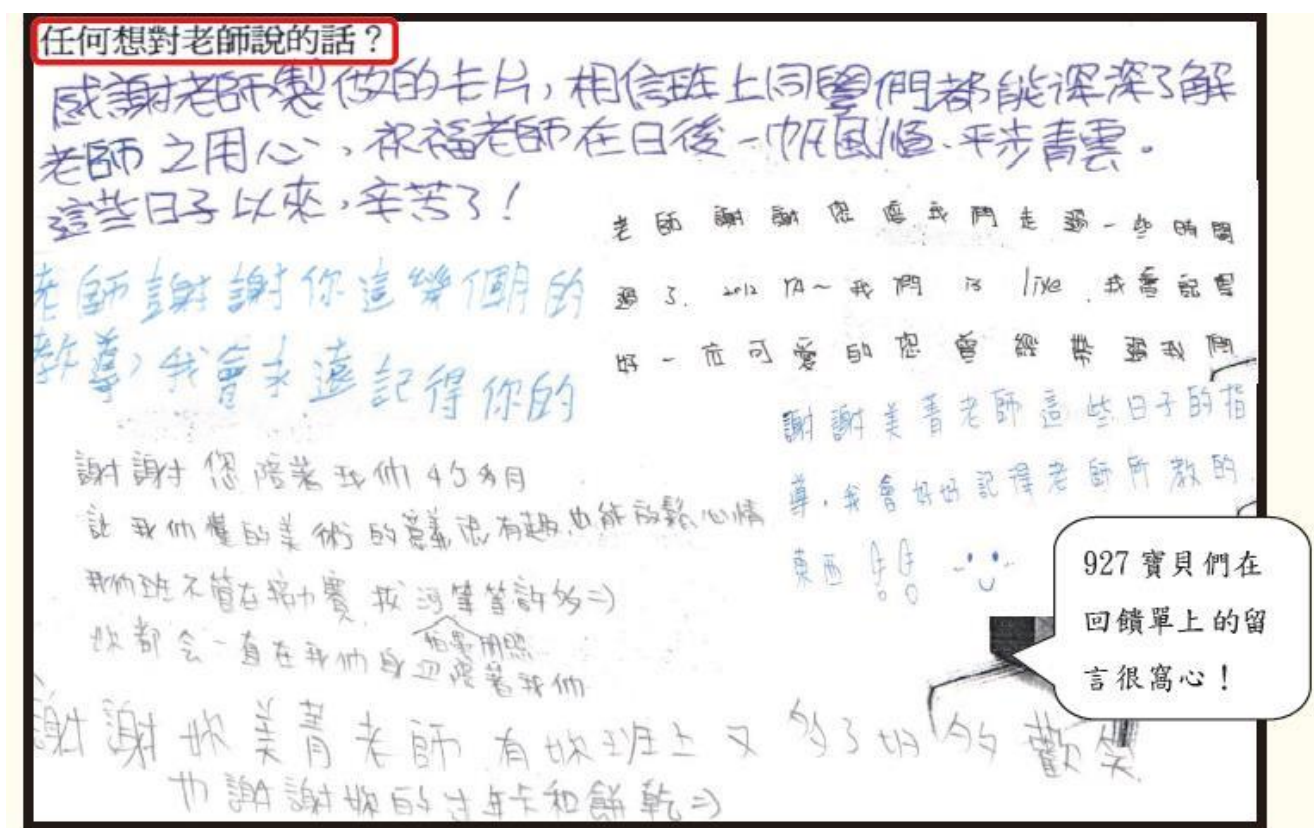 任何想對老師說的話？
感謝老師製做的卡片，相信班上同學們都能深深了解
老師之用心，祝福老師在日後一帆風順、平步青雲。
這些日子以來，辛苦了！
老師謝謝您陪我們走過一些時間
過了. 2012 YA~我們 is like. 我會記得
好一位可愛的您曾經帶過我們
老師謝謝你這幾個月的
教導，我會永遠記得你的
謝謝美青老師這些日子的指
導，我會好好記得老師所教的
東西!!
謝謝您陪著我們4個多月
讓我們懂的美術的意義很有趣也能放鬆心情
我們班不管在接力賽 拔河等等許多=)
妳都会一直在我們身邊陪著我們
拍團體照
謝謝妳美青老師有妳班上又多了好多的歡笑
也謝謝妳的卡和餅乾=)
927 寶貝們在
回饋單上的留
言很窩心！